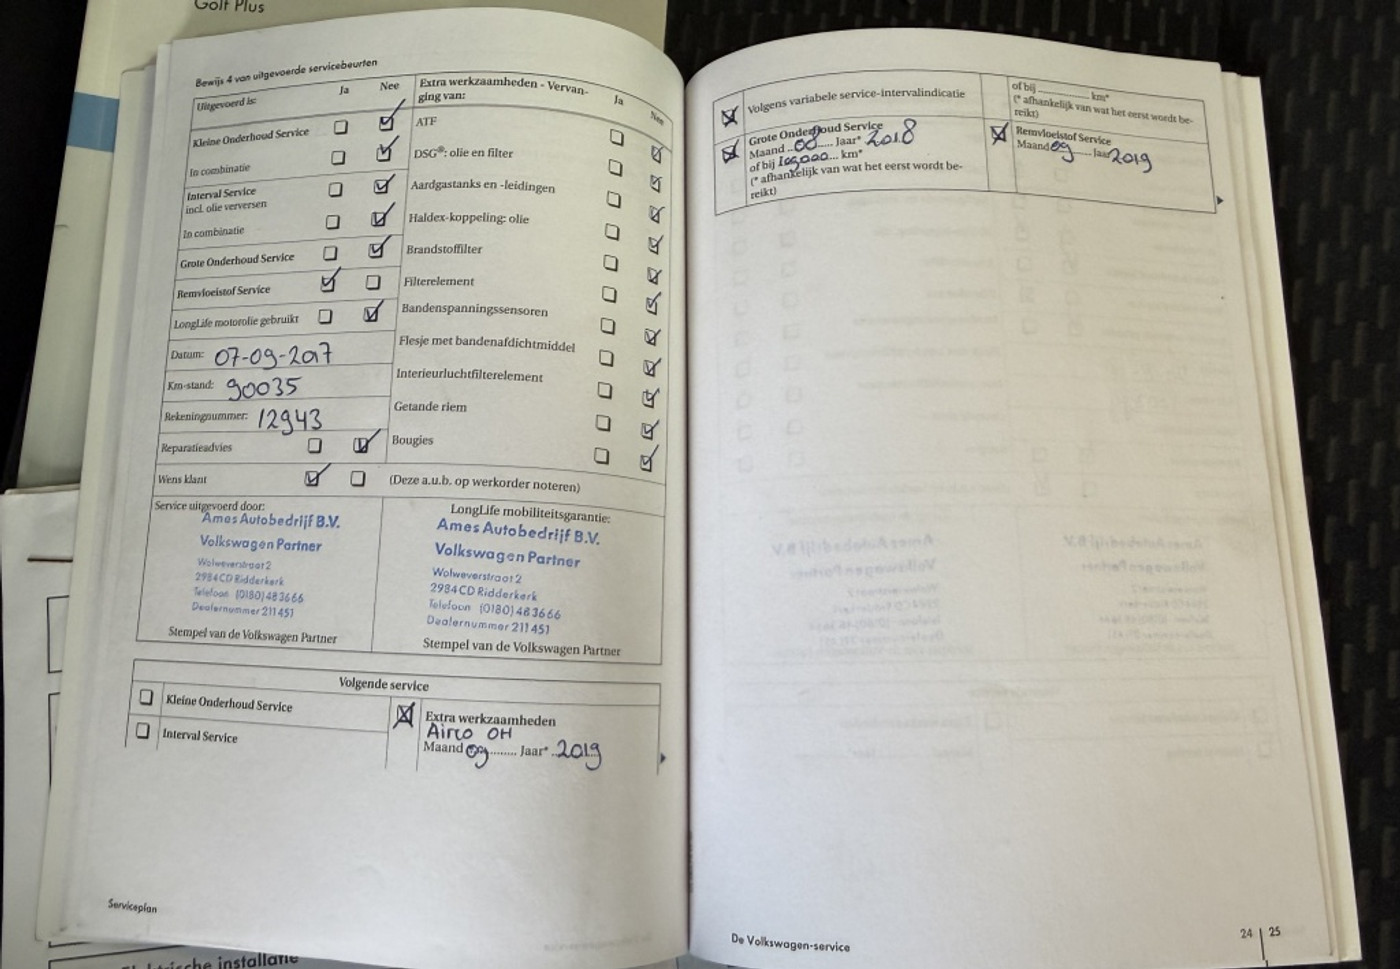 Golf Plus
Bewijs 4 van uitgevoerde servicebeurten
Uitgevoerd is: Ja Nee
Kleine Onderhoud Service
In combinatie
Interval Service
incl. olie verversen
In combinatie
Grote Onderhoud Service
Remvloeistof Service
LongLife motorolie gebruikt
Datum: 07-09-2017
Km-stand: 90035
Rekeningnummer: 12943
Reparatieadvies
Wens klant
Extra werkzaamheden - Vervan-
ging van: Ja Nee
ATF
DSG®: olie en filter
Aardgastanks en -leidingen
Haldex-koppeling: olie
Brandstoffilter
Filterelement
Bandenspanningssensoren
Flesje met bandenafdichtmiddel
Interieurluchtfilterelement
Getande riem
Bougies
(Deze a.u.b. op werkorder noteren)
Service uitgevoerd door:
Ames Autobedrijf B.V.
Volkswagen Partner
Wolweverstraat 2
2984CD Ridderkerk
Telefoon (0180) 483666
Dealernummer 211451
Stempel van de Volkswagen Partner
LongLife mobiliteitsgarantie:
Ames Autobedrijf B.V.
Volkswagen Partner
Wolweverstraat 2
2984CD Ridderkerk
Telefoon (0180) 483666
Dealernummer 211451
Stempel van de Volkswagen Partner
Volgende service
Kleine Onderhoud Service
Interval Service
Extra werkzaamheden
Airco OH
Maand 09 ........ Jaar* .2019
Serviceplan
Volgens variabele service-intervalindicatie
Grote Onderhoud Service
Maand ..08..... Jaar* 2018
of bij 100000... km*
(* afhankelijk van wat het eerst wordt be-
reikt)
of bij .............. km*
(* afhankelijk van wat het eerst wordt be-
reikt)
Remvloeistof Service
Maand 09 ..... Jaar 2019
De Volkswagen-service
24 | 25
installatie